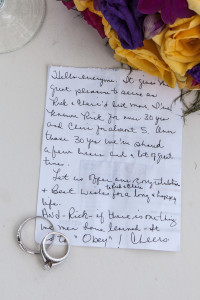 Hello everyone. It gives me
great pleasure to serve as
Rick & best man. I've
known Rick for over 30 years
and for about 5. Over
those 30 yrs we've shared
a few beers and a lot of great
times.
Let us offer our congratulations
to Rick &
+ Best wishes for a long & happy
life.
And - Rick - if there is one thing
we men have learned - It
is to "Obey" ! Cheers